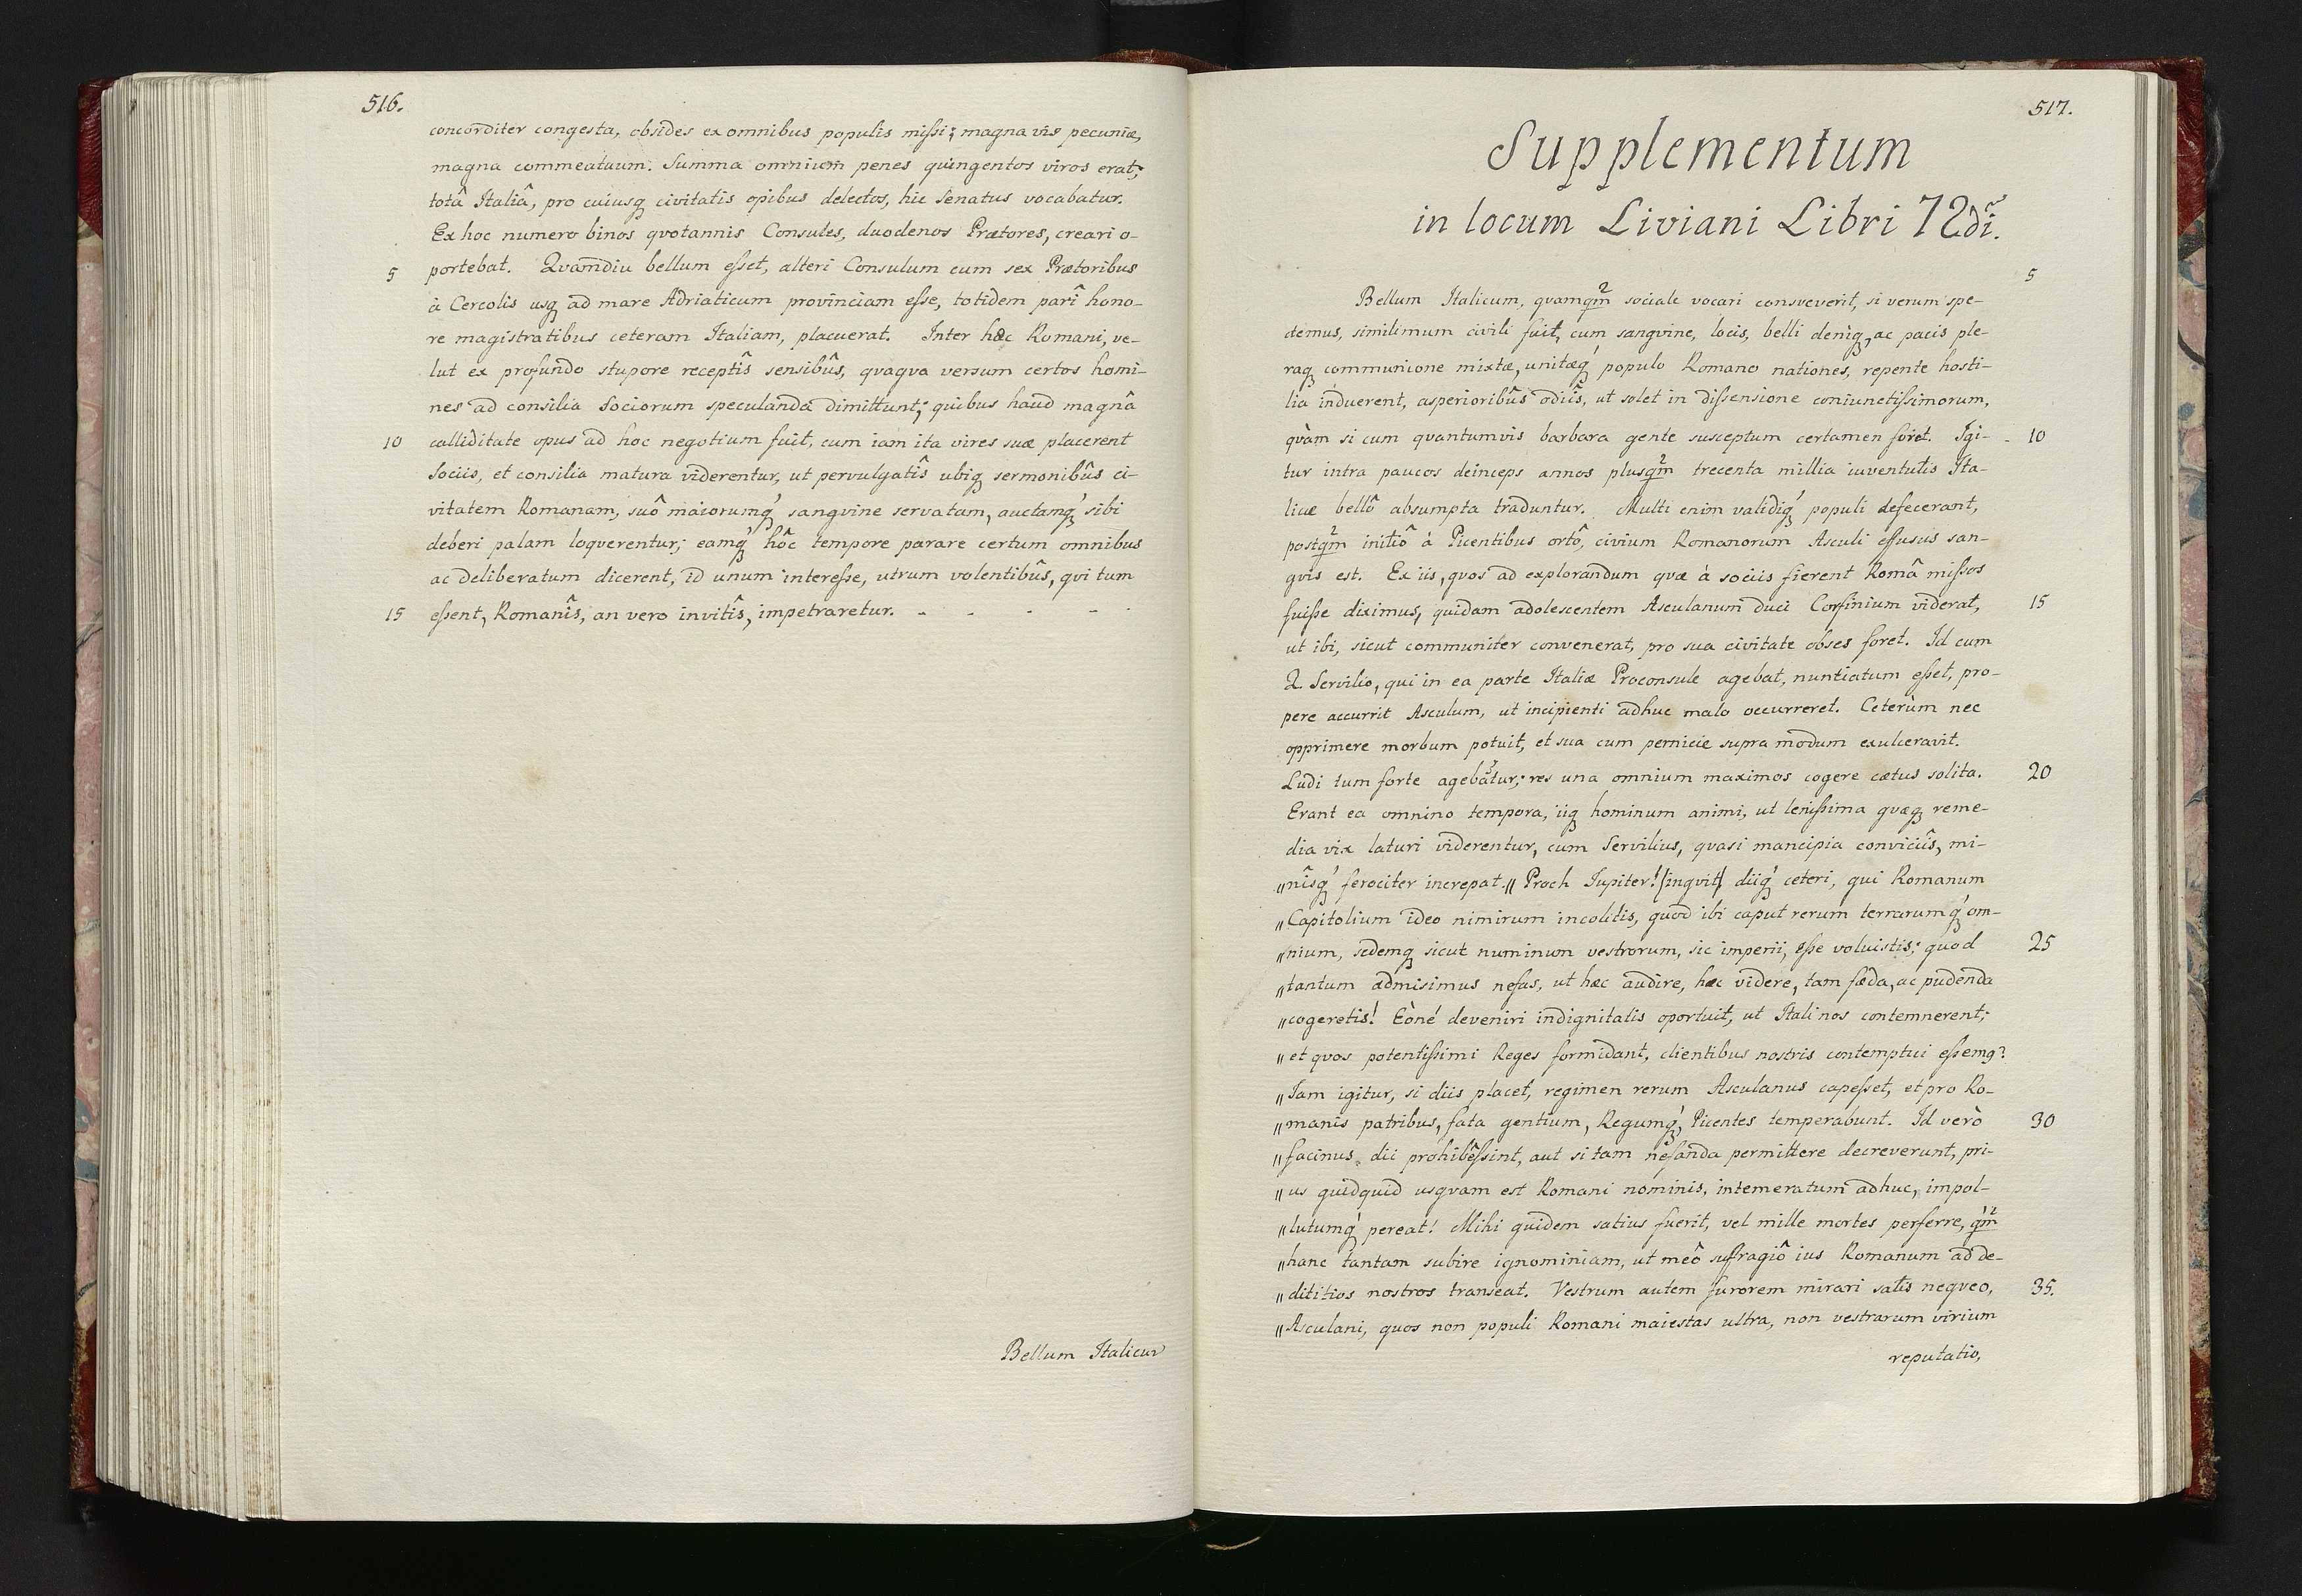 516.
concorditer congesta, obsides ex omnibus populis missi; magna vis pecuniæ,
magna commeatuum. Summa omnium penes quingentos viros erat;
totâ Italiâ, pro cuiusq civitatis opibus delectos, hic Senatus vocabatur.
Ex hoc numero binos qvotannis Consules, duodenos Prætores, creari o-
5 portebat. Qvamdiu bellum esset, alteri Consulum cum sex Prætoribus
à Cercolis usq ad mare Adriaticum provinciam esse, totidem parî hono-
re magistratibus ceteram Italiam, placuerat. Inter hæc Romani, ve-
lut ex profundo stupore receptîs sensibûs, qvaqva versum certos homi-
nes ad consilia Sociorum speculanda dimittunt; quibus haud magnâ
10 calliditate opus ad hoc negotium fuit, cum iam ita vires suæ placerent
Sociis, et consilia matura viderentur, ut pervulgatîs ubiq sermonibûs ci-
vitatem Romanam, suô maiorumq́ sangvine servatam, auctamq́ sibi
deberi palam loqverentur; eamq́ hôc tempore parare certum omnibus
ac deliberatum dicerent, id unum interesse, utrum volentibûs, qvi tum
15 essent, Romanîs, an vero invitîs, impetraretur. - - - - -
Bellum Italicum
517.
Supplementum
in locum Liviani Libri 72di.
5
Bellum Italicum, qvamqm̃ sociale vocari consveverit, si verum spe-
ctemus, similimum civili fuit, cum sangvine, locis, belli deniq, ac pacis ple-
raq communione mixtæ, unitæq́ populo Romano nationes, repente hosti-
lia induerent, asperioribûs odiîs, ut solet in dissensione coniunctissimorum,
qvàm si cum qvantumvis barbara gente susceptum certamen foret. Igi- - 10
tur intra paucos deinceps annos plusqm̃ trecenta millia iuventutis Ita-
licæ bellô absumpta traduntur. Multi enim validiq́ populi defecerant,
postqm̃ initiô à Picentibus ortô, civium Romanorum Asculi effusus san-
gvis est. Ex iis, qvos ad explorandum quæ à sociis fierent Româ missos
fuisse diximus, quidam adolescentem Asculanum duci Corfinium viderat, 15
ut ibi, sicut communiter convenerat, pro sua civitate obses foret. Id cum
Q. Servilio, qui in ea parte Italiæ Proconsule agebat, nuntiatum esset, pro-
pere accurrit Asculum, ut incipienti adhuc malo occurreret. Ceterùm nec
opprimere morbum potuit, et sua cum pernicie supra modum exulceravit.
Ludi tum forte agebãtur; res una omnium maximos cogere cætus solita. 20
Erant ea omnino tempora, iiq hominum animi, ut lenissima qvæq reme-
dia vix laturi viderentur, cum Servilius, qvasi mancipia conviciîs, mi-
„nîsq́ ferociter increpat. „ Proch Iupiter! [inqvit] diiq́ ceteri, qui Romanum
„Capitolium ideo nimirum incolitis, quod ibi caput rerum terrarumq́ om-
„nium, sedemq sicut numinum vestrorum, sic imperii, esse voluistis; quod 25
„tantum admisimus nefas, ut hæc audire, hæc videre, tam fæda, ac pudenda
„cogeretis! Eòné deveniri indignitatis oportuit, ut Itali nos contemnerent;
„et qvos potentissimi Reges formidant, clientibus nostris contemptui essemq?
„Iam igitur, si diis placet, regimen rerum Asculanus capesset, et pro Ro-
„manis patribus, fata gentium, Regumq́, Picentes temperabunt. Id verò 30
„facinus dii prohibêssint, aut si tam nefanda permittere decreverunt, pri-
„us quidquid usqvam est Romani nominis, intemeratum adhuc, impol-
„lutumq́ pereat! Mihi quidem satius fuerit, vel mille mortes perferre, qm̃
„hanc tantam subire ignominiam, ut meô suffragiô ius Romanum ad de-
„dititios nostros transeat. Vestrum autem furorem mirari satis neqveo, 35.
„Asculani, quos non populi Romani maiestas ultra, non vestrarum virium
reputatio,